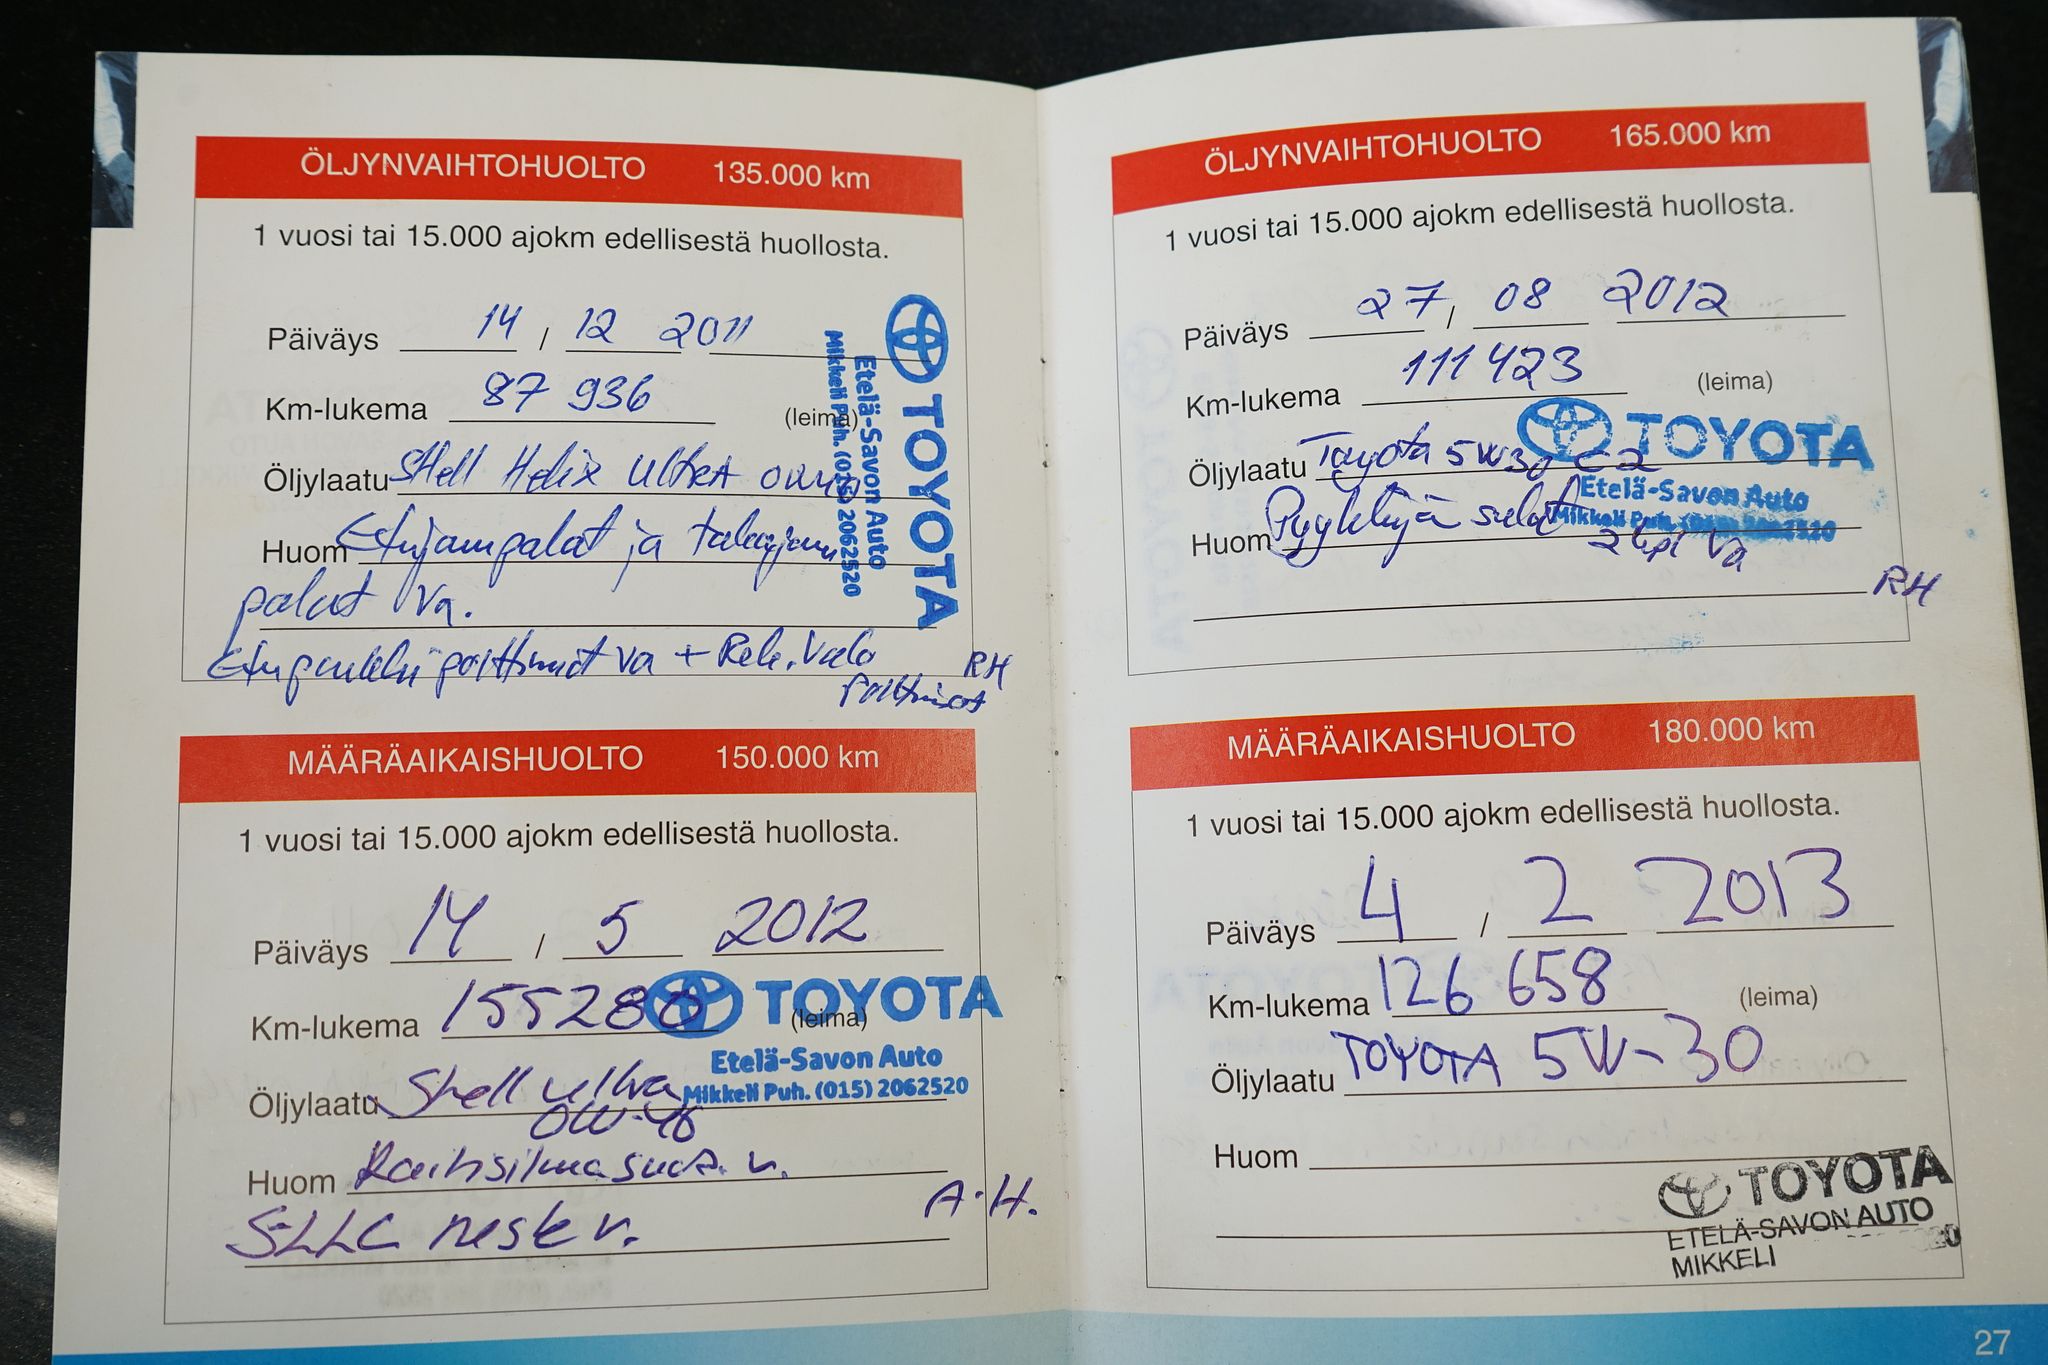 ÖLJYNVAIHTOHUOLTO 135.000 km
1 vuosi tai 15.000 ajokm edellisestä huollosta.
Päiväys 14 / 12 2011
Km-lukema 87 936 (leima)
Öljylaatu Shell Helix Ultra
Huom Etujarrupalat ja takajarru
palat va.
Etupenkki polttimot va + Rek. Valo
polttimot
RH
TOYOTA
Etelä-Savon Auto
Mikkeli Puh. (015) 2062520
MÄÄRÄAIKAISHUOLTO 150.000 km
1 vuosi tai 15.000 ajokm edellisestä huollosta.
Päiväys 14 / 5 2012
Km-lukema 155280 (leima)
TOYOTA
Etelä-Savon Auto
Mikkeli Puh. (015) 2062520
Öljylaatu Shell ultra
0W-40
Huom Raitisilmasuod. v.
A.H.
SLLC neste v.
ÖLJYNVAIHTOHUOLTO 165.000 km
1 vuosi tai 15.000 ajokm edellisestä huollosta.
Päiväys 27 / 08 2012
Km-lukema 111 423 (leima)
TOYOTA
Öljylaatu Toyota 5W30 C2
Etelä-Savon Auto
Mikkeli Puh. (015) 2062520
Huom Pyyhkijä sulat
2kpl va
RH
MÄÄRÄAIKAISHUOLTO 180.000 km
1 vuosi tai 15.000 ajokm edellisestä huollosta.
Päiväys 4 / 2 2013
Km-lukema 126 658 (leima)
Öljylaatu TOYOTA 5W-30
Huom
TOYOTA
ETELÄ-SAVON AUTO
MIKKELI
27